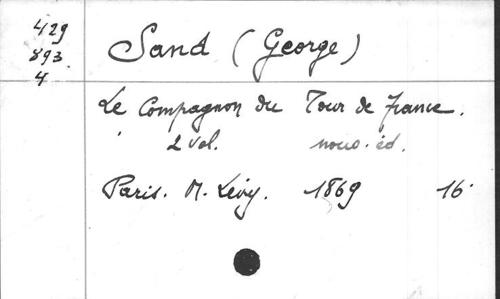 429
893
4
Sand (George)
Le Compagnon du Tour de France.
2 vol. nouv. éd.
Paris. M. Lévy. 1869 16